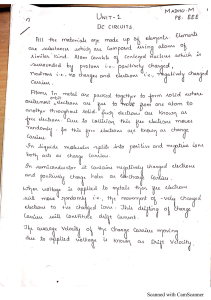 MADHU.M
UNIT-1
PE- EEE
DC CIRCUITS.
All the materials are made up of elements. Elements
are substances which are composed using atoms of
similar kind. Atom consists of nucleus which is
surrounded by protons i.e. positively charged,
neutrons i.e. no charges and electrons i.e, negatively charged
Carriers.
Atoms in metal are packed together to form solid
outermost electrons are free to move from one atom to
another throughout solid. Such electrons are known as
free electrons. Due to collision this free electrons moves
randomly. So this free electrons are known as charge
Carriers.
In liquids molecular splits into positive and negative ions
both acts as charge Carriers.
In semiconductor it contains negatively charged electrons
and positively charge holes as charge Carriers.
When voltage is applied to metals then free electrons
will move randomly i.e, the movement of -vely charged
electrons to +ve charged ions. This drifting of charge
Carriers will constitutes drift current.
The average Velocity of the charge Carriers moving
due to applied voltage is known as Drift Velocity
Scanned with CamScanner